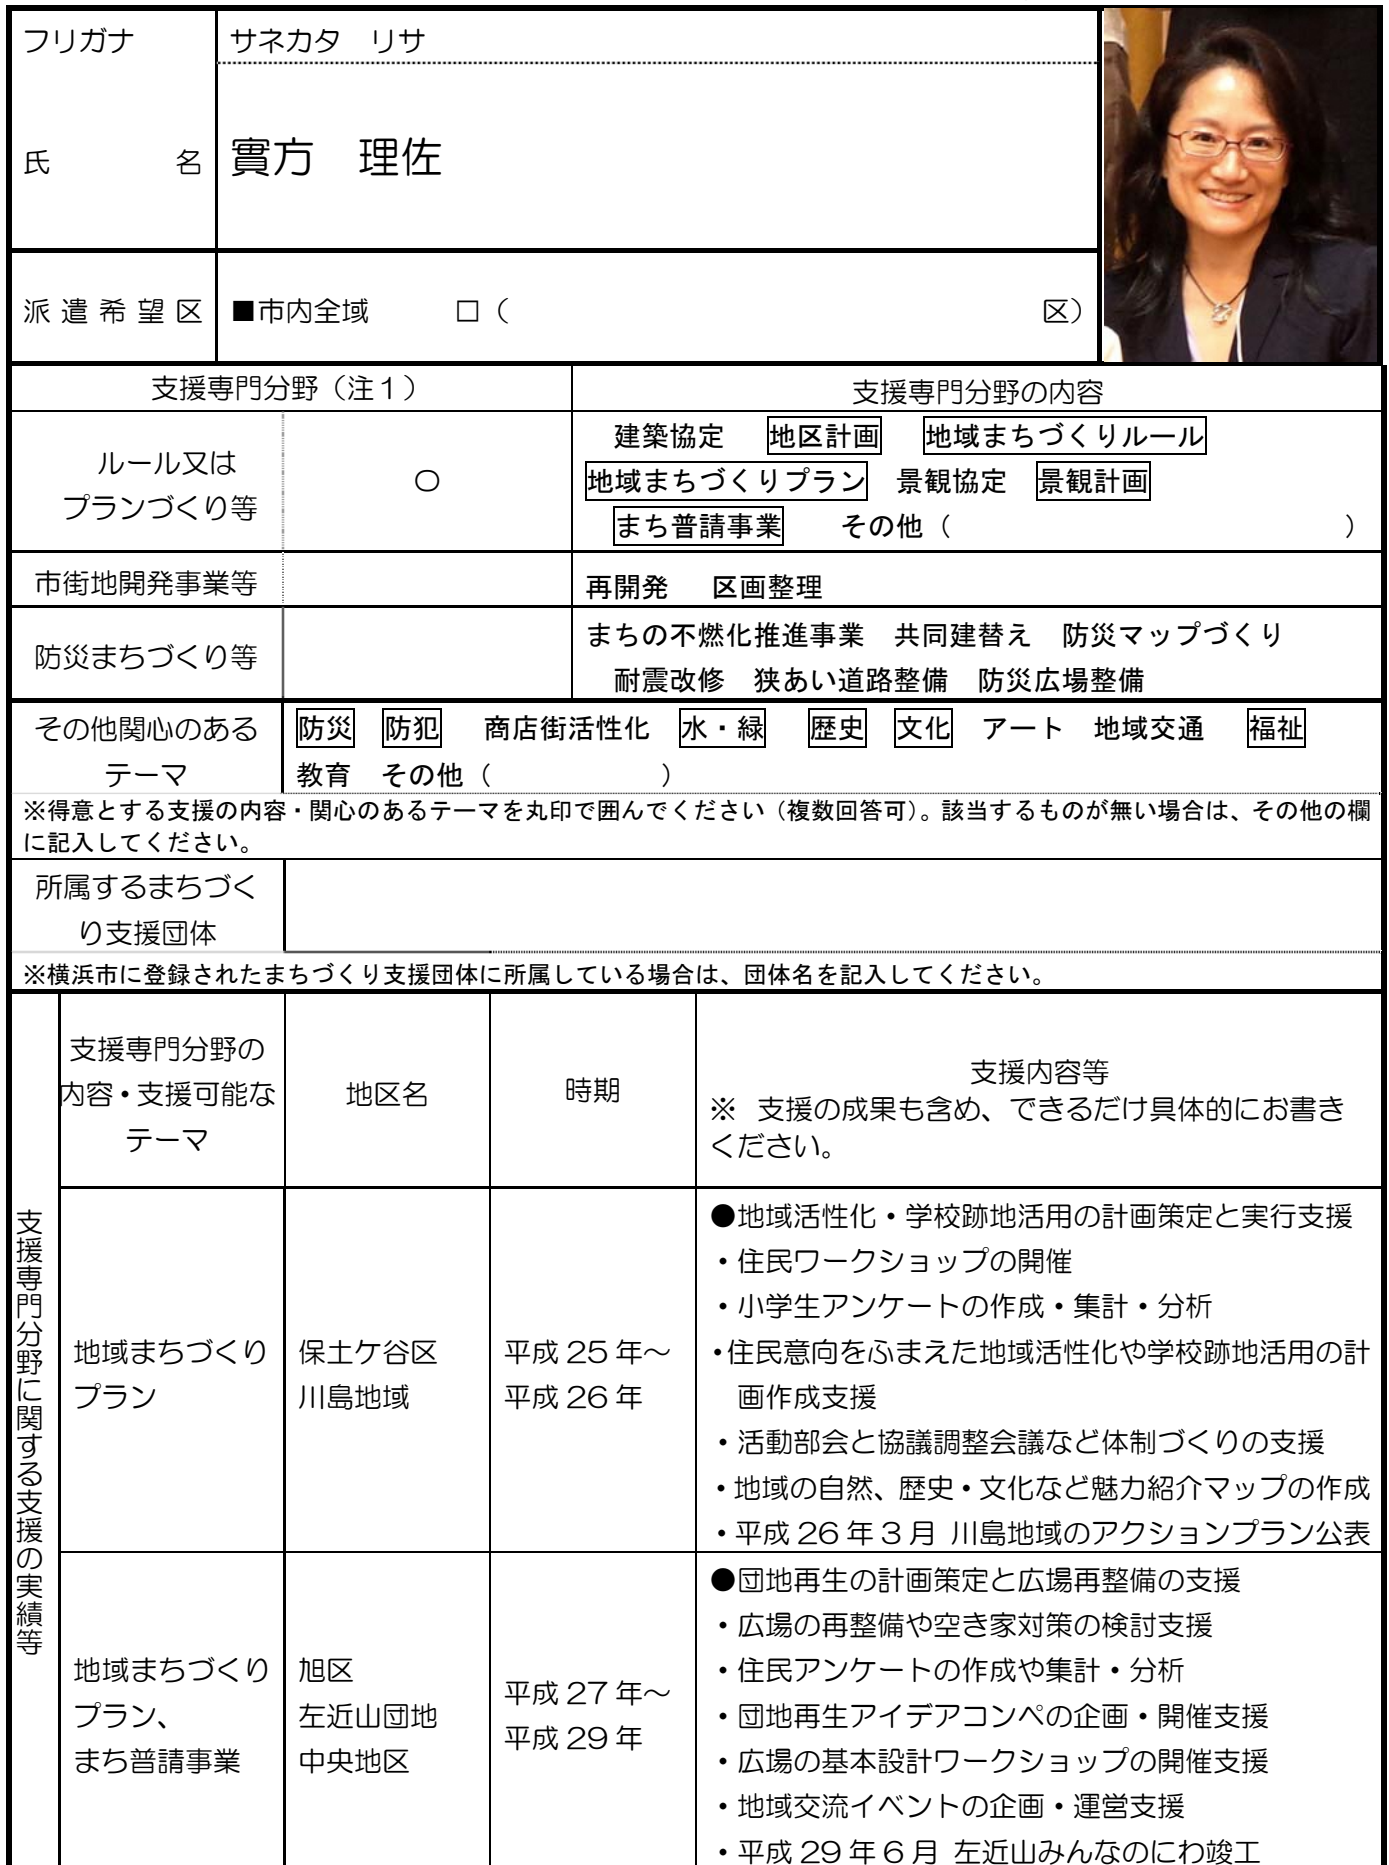 フリガナ
サネカタ　リサ
氏　名
實方　理佐
派遣希望区
■市内全域　□（　区）
支援専門分野（注１）
支援専門分野の内容
ルール又は
プランづくり等
○
建築協定　地区計画　地域まちづくりルール
地域まちづくりプラン　景観協定　景観計画
まち普請事業　その他（　）
市街地開発事業等
再開発　区画整理
防災まちづくり等
まちの不燃化推進事業　共同建替え　防災マップづくり
耐震改修　狭あい道路整備　防災広場整備
その他関心のある
テーマ
防災　防犯　商店街活性化　水・緑　歴史　文化　アート　地域交通　福祉
教育　その他（　）
※得意とする支援の内容・関心のあるテーマを丸印で囲んでください（複数回答可）。該当するものが無い場合は、その他の欄
に記入してください。
所属するまちづく
り支援団体
※横浜市に登録されたまちづくり支援団体に所属している場合は、団体名を記入してください。
支援専門分野に関する支援の実績等
支援専門分野の
内容・支援可能な
テーマ
地区名
時期
支援内容等
※　支援の成果も含め、できるだけ具体的にお書き
ください。
地域まちづくり
プラン
保土ケ谷区
川島地域
平成 25 年～
平成 26 年
●地域活性化・学校跡地活用の計画策定と実行支援
・住民ワークショップの開催
・小学生アンケートの作成・集計・分析
・住民意向をふまえた地域活性化や学校跡地活用の計
画作成支援
・活動部会と協議調整会議など体制づくりの支援
・地域の自然、歴史・文化など魅力紹介マップの作成
・平成 26 年 3 月 川島地域のアクションプラン公表
地域まちづくり
プラン、
まち普請事業
旭区
左近山団地
中央地区
平成 27 年～
平成 29 年
●団地再生の計画策定と広場再整備の支援
・広場の再整備や空き家対策の検討支援
・住民アンケートの作成や集計・分析
・団地再生アイデアコンペの企画・開催支援
・広場の基本設計ワークショップの開催支援
・地域交流イベントの企画・運営支援
・平成 29 年 6 月 左近山みんなのにわ竣工